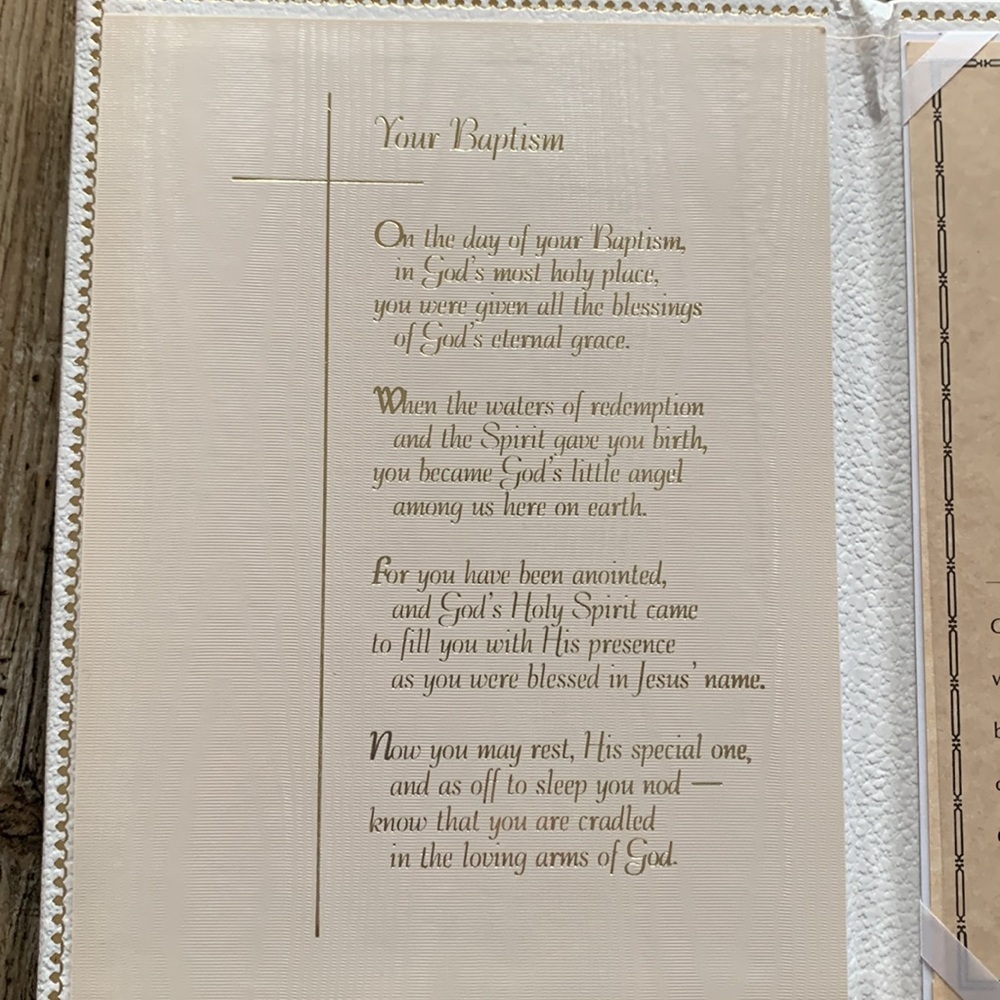 Your Baptism
On the day of your Baptism,
in God's most holy place,
you were given all the blessings
of God's eternal grace.
When the waters of redemption
and the Spirit gave you birth,
you became God's little angel
among us here on earth.
For you have been anointed,
and God's Holy Spirit came
to fill you with His presence
as you were blessed in Jesus' name.
Now you may rest, His special one,
and as off to sleep you nod —
know that you are cradled
in the loving arms of God.